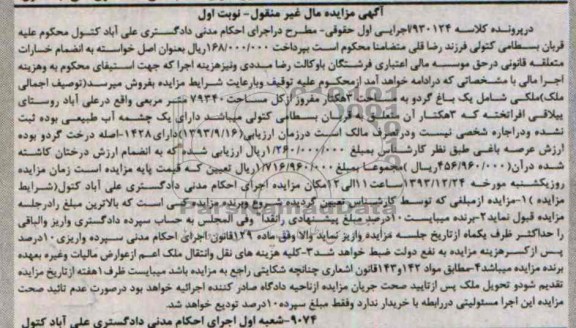 آگهی مزایده مال غیر منقول- نوبت اول
درپرونده کلاسه ۹۳۰۱۲۴اجرایی اول حقوقی- مطرح دراجرای احکام مدنی دادگستری علی آباد کتول محکوم علیه
قربان بسطامی کتولی فرزند رضا قلی متضامنا محکوم است بپرداخت ۱۶۸/۰۰۰/۰۰۰ریال بعنوان اصل خواسته به انضمام خسارات
متعلقه قانونی درحق موسسه مالی اعتباری فرشتگان باوکالت رضا مرددی ونیزهزینه اجرا که جهت استیفای محکوم به وهزینه
اجرا مالی با مشخصاتی که درادامه خواهد آمد ازمحکوم علیه توقیف وبارعایت شرایط مزایده بفروش میرسد(توصیف اجمالی
ملک)ملکی شامل یک باغ گردو به مساحت ۳هکتار مفروز ازکل مساحت ۷۹۳۴۰ متر مربعی واقع درعلی آباد روستای
ییلاقی افراتخته که ۳هکتار آن متعلق به قربان بسطامی کتولی میباشد دارای یک چشمه آب طبیعی بوده ثبت
نشده ودراجاره شخصی نیست ودرتصرف مالک است درزمان ارزیابی(۱۳۹۳/۹/۱۶)دارای۱۴۲۸اصله درخت گردو بوده
ارزش عرصه باغی طبق نظر کارشناس بمبلغ ۱/۲۶۰/۰۰۰/۰۰۰ریال ارزیابی شده که به انضمام ارزش درختان کاشته
شده درآن(۴۵۶/۹۶۰/۰۰۰ریال )مجموعا بمبلغ ۱/۷۱۶/۹۶۰/۰۰۰ریال تعیین که قیمت پایه مزایده است زمان مزایده
روزیکشنبه مورخه ۱۳۹۳/۱۲/۲۴ساعت۱۱الی۱۲مکان مزایده اجرای احکام مدنی دادگستری علی آباد کتول(شرایط
مزایده )۱-مزایده ازمبلغی که توسط کارشناس تعیین گردیده شروع وبرنده مزایده کسی است که بالاترین مبلغ رادرجلسه
مزایده قبول نماید۲-برنده میبایست ۱۰درصد مبلغ پیشنهادی رانقدا وفی المجلس به حساب سپرده دادگستری واریز والباقی
را حداکثر ظرف یکماه ازتاریخ جلسه مزایده واریز نماید والا وفق ماده ۱۲۹قانون اجرای احکام مدنی سپرده واریزی۱۰درصد
پس ازکسرهزینه مزایده به نفع دولت ضبط خواهد شد۳-کلیه هزینه های نقل وانتقال ملک اعم ازعوارض مالیات وغیره بعهده
برنده مزایده میباشد۴-مطابق مواد ۱۴۲و۱۴۳قانون اشعاری چنانچه شکایتی راجع به مزایده باشد میبایست ظرف ۱هفته ازتاریخ مزایده
تقدیم شودو تحویل ملک پس ازتایید صحت جریان مزایده ازناحیه دادگاه صادر کننده اجرائیه خواهد بود درصورت عدم تائید صحت
مزایده این اجرا مسئولیتی دررابطه با خریدار ندارد وفقط مبلغ سپرده۱۰درصد تودیع خواهد شد.
۹۰۷۴-شعبه اول اجرای احکام مدنی دادگستری علی آباد کتول